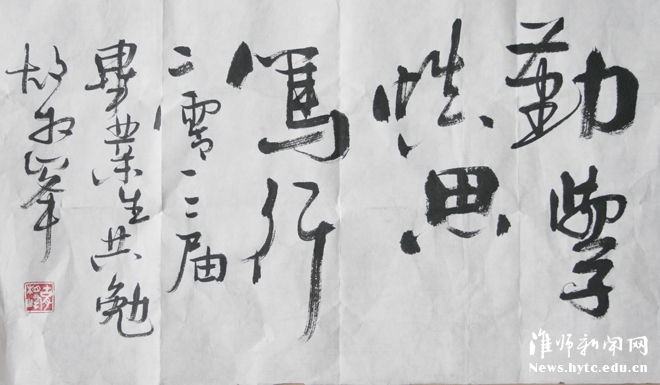 勤學
慎思
篤行
二零一二届
畢業生共勉
胡相峯
淮师新闻网
News.hytc.edu.cn